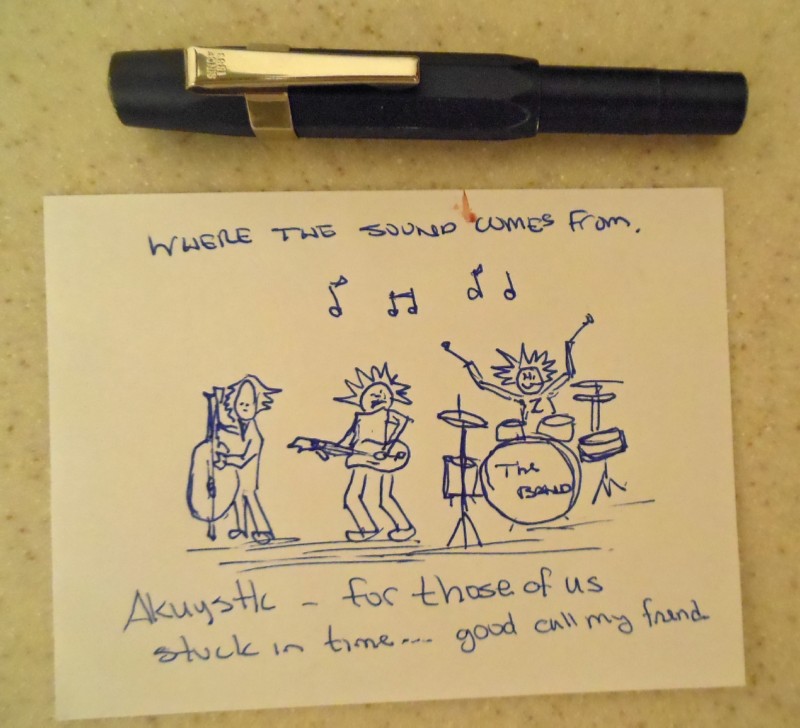 SINCE
1883
WHERE THE SOUND COMES From.
The
BAND
AkuystIc - for those of us
stuck in time... good call my friend